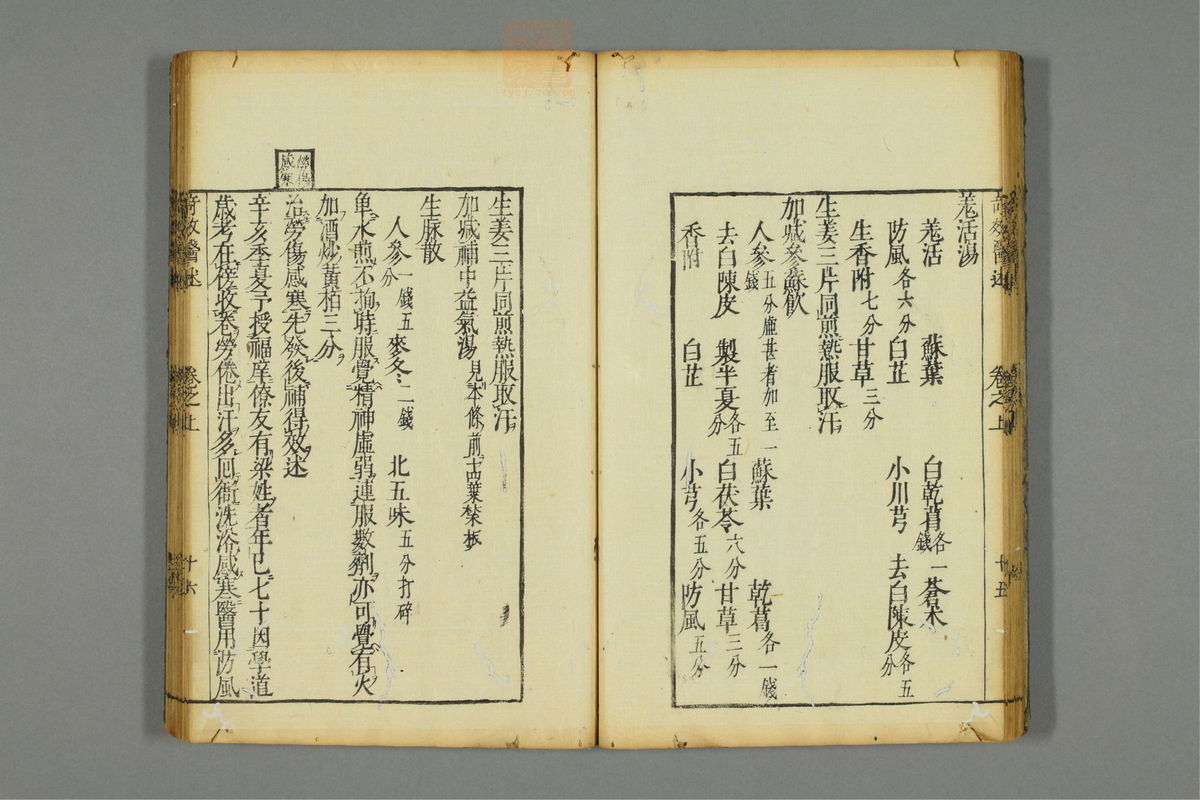 奇效醫述 卷之上 十五
羗活湯
羗活 蘇葉 白乾葛各一錢 蒼术
防風各六分 白芷 小川芎 去白陳皮各五分
生香附七分 甘草三分
生姜三片同煎熱服取汗
加减參蘇飲
人參五分虛甚者加至一錢 蘇葉 乾葛各一錢
去白陳皮 製半夏各五分 白茯苓六分 甘草三分
香附 白芷 小芎各五分 防風五分
生姜三片同煎熱服取汗
加减補中益氣湯見本條前
生脉散
人參一錢五分 麥冬二錢 北五味五分打碎
單水煎不拘時服覺精神虛弱連服數劑亦可覺有火
加酒炒黃柏三分
治勞傷感寒先發後補得效述
辛亥季夏予授福庠僚友有梁姓者年已七十因學道
歲考在徬收卷勞倦出汗多回衙洗浴感寒醫用防風
奇效醫述 卷之上 十六